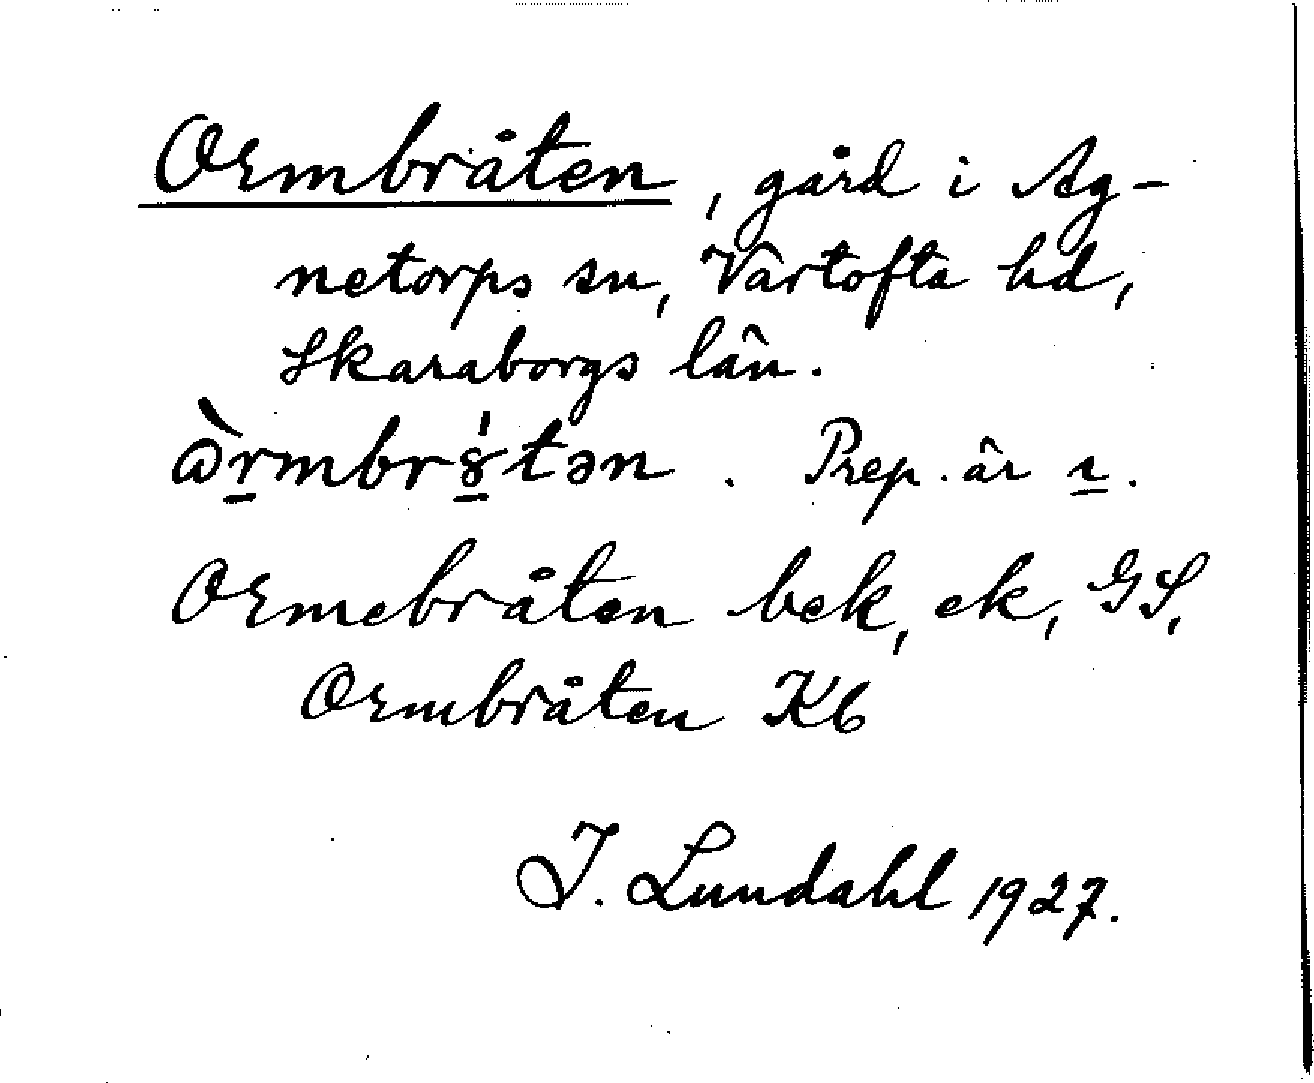 Ormbråten, gård i Ag-
netorps sn, Vartofta hd,
Skaraborgs län.
ὼr̲mbr8̲́tən. Prep. är ı̲.
Ormebråten bek, ek, GS,
Ormbråten Kb
I. Lundahl 1927.